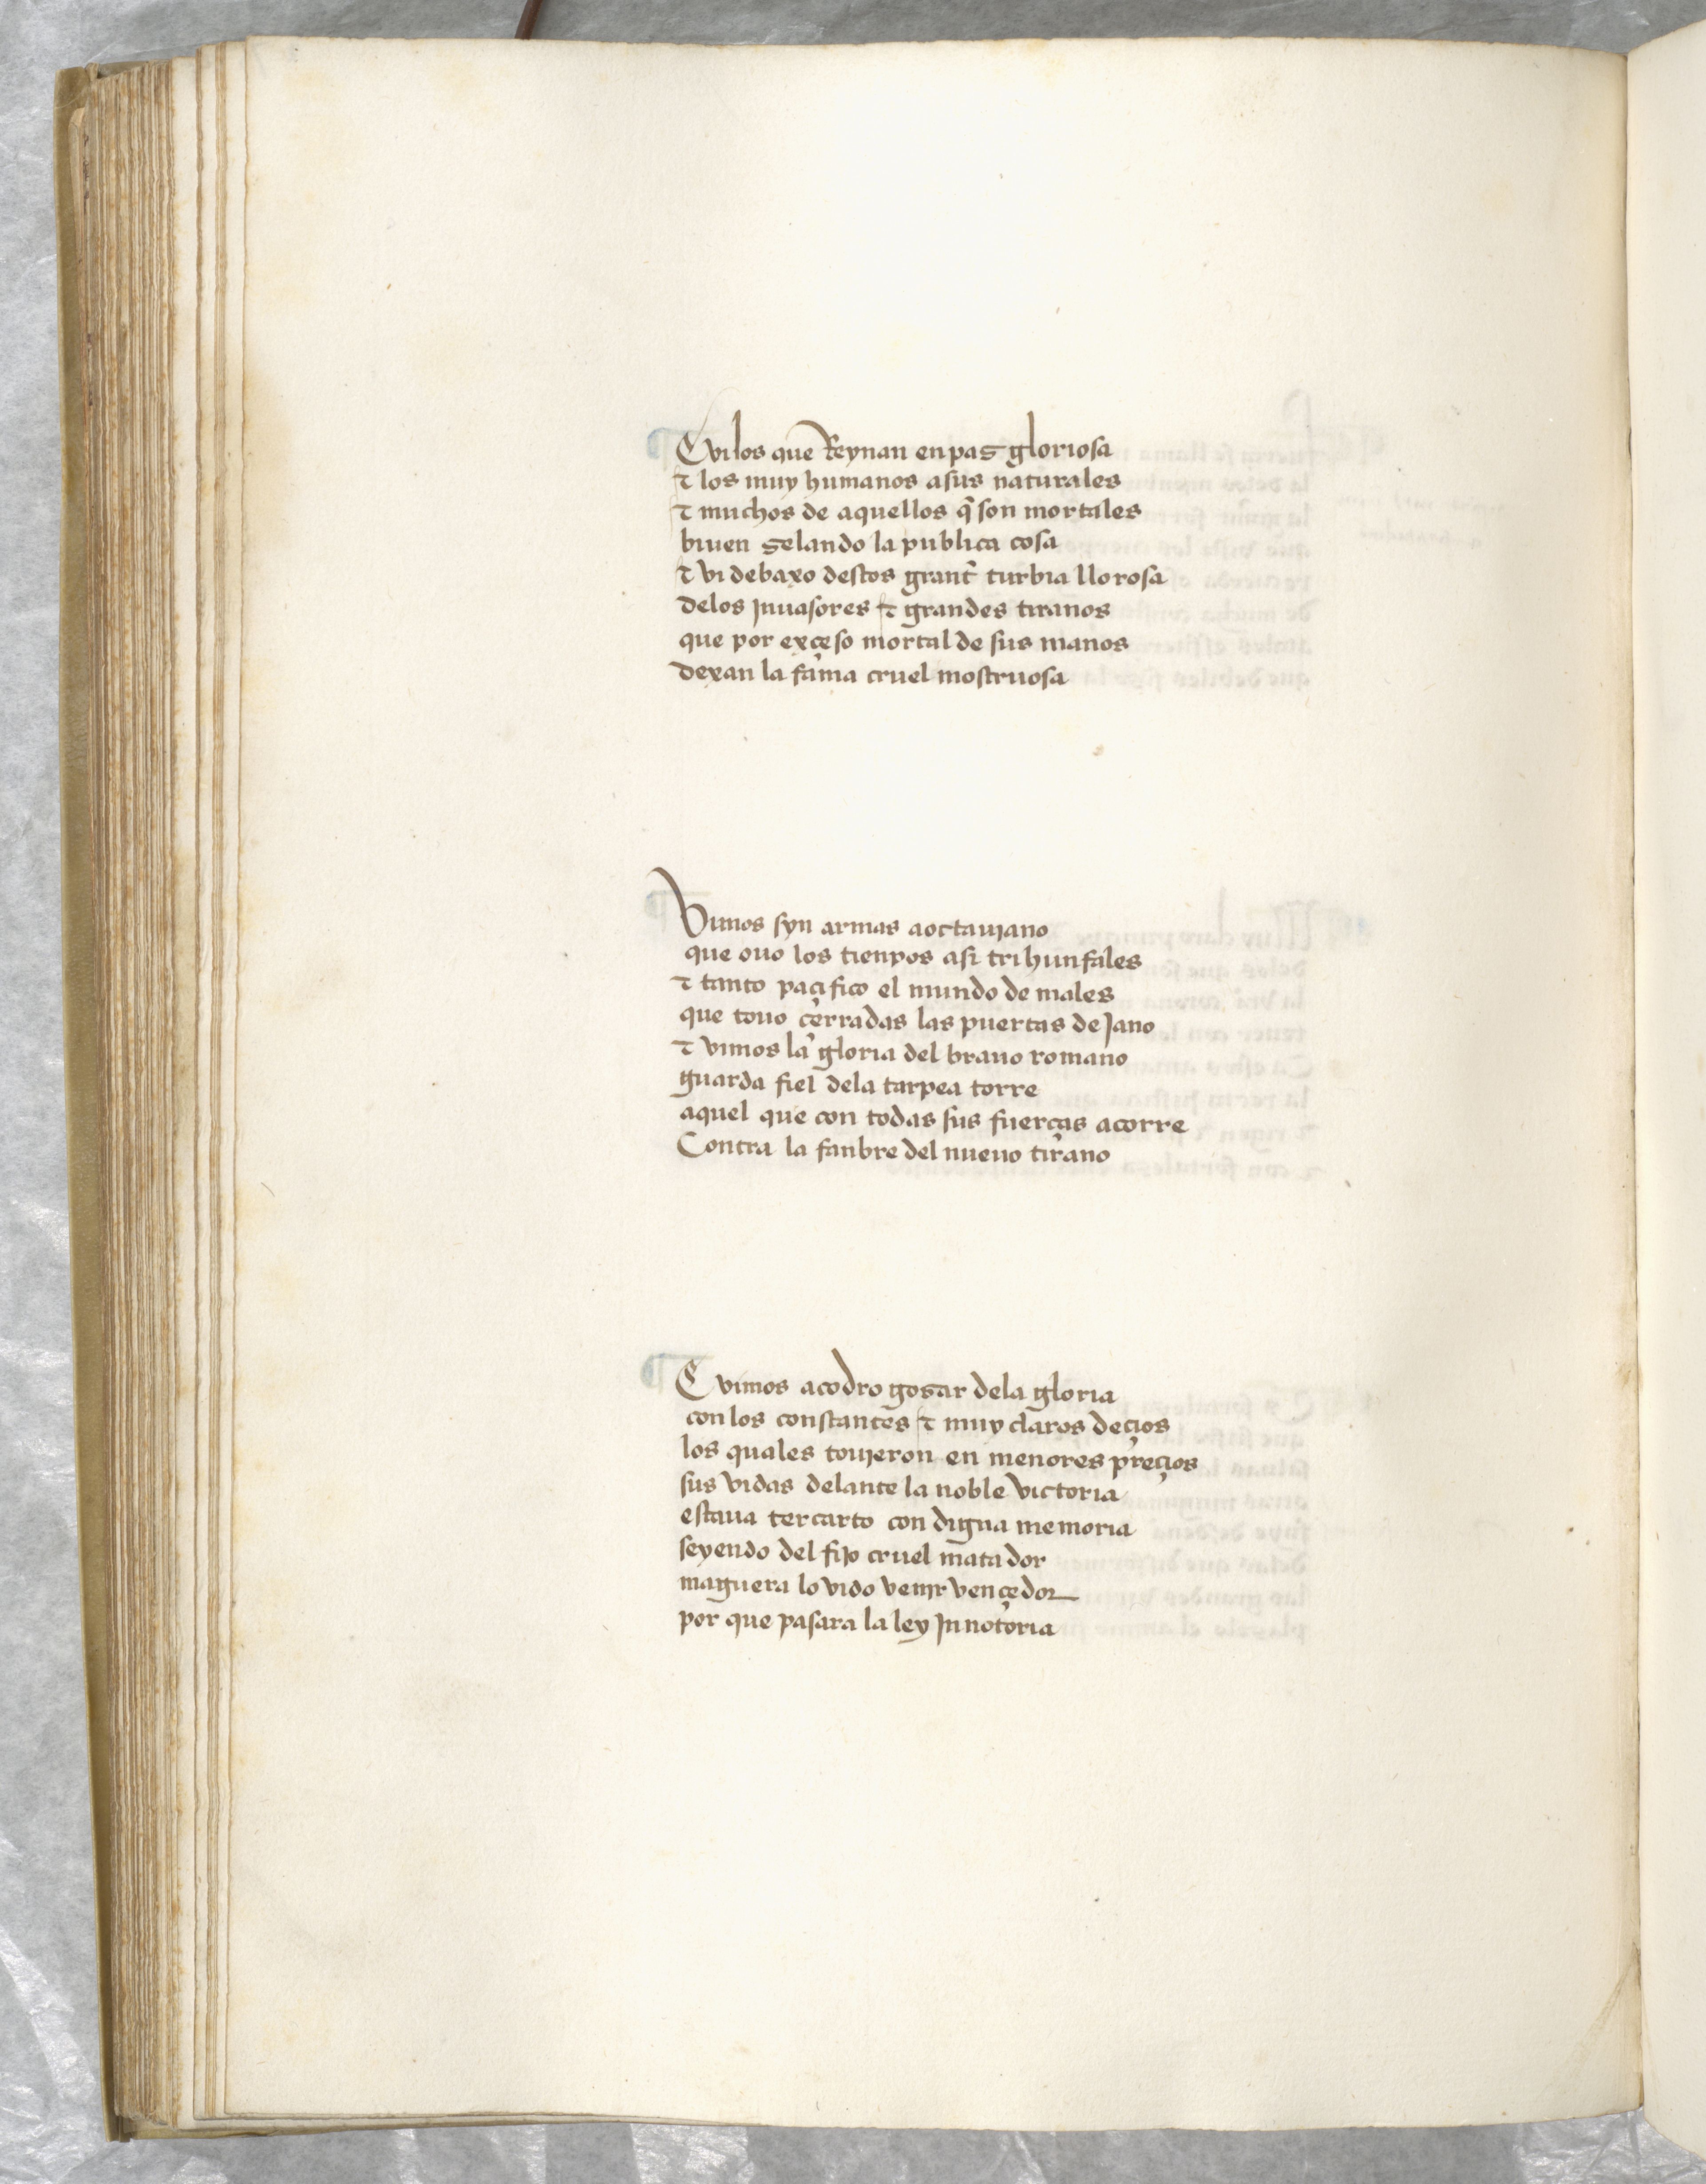 E vi los que Reynan en pas gloriosa
τ los muy humanos a sus naturales
τ muchos de aquellos q̃ son mortales
biuen selando la publica cosa
τ vi debaxo destos grant turbia llorosa
delos jnuasores τ grandes tiranos
que por exçeso mortal de sus manos
dexan la fama cruel mostruosa
Vimos syn armas a octaujano
que ouo los tienpos asi trihunfales
τ tanto paçifico el mundo de males
que touo çerradas las puertas de Jano
τ vimos la gloria del brauo romano
guarda fiel dela tarpea torre
aquel que con todas sus fuerças acorre
Contra la fanbre del nueuo tirano
E vimos a codro gosar dela gloria
con los constantes τ muy claros deçios
los quales toujeron en menores preçios
sus vidas delante la noble victoria
estaua tercarto con digna memoria
seyendo del fijo cruel matador
maguera lo vido venjr vençedor
por que pasara la ley jnnotoria